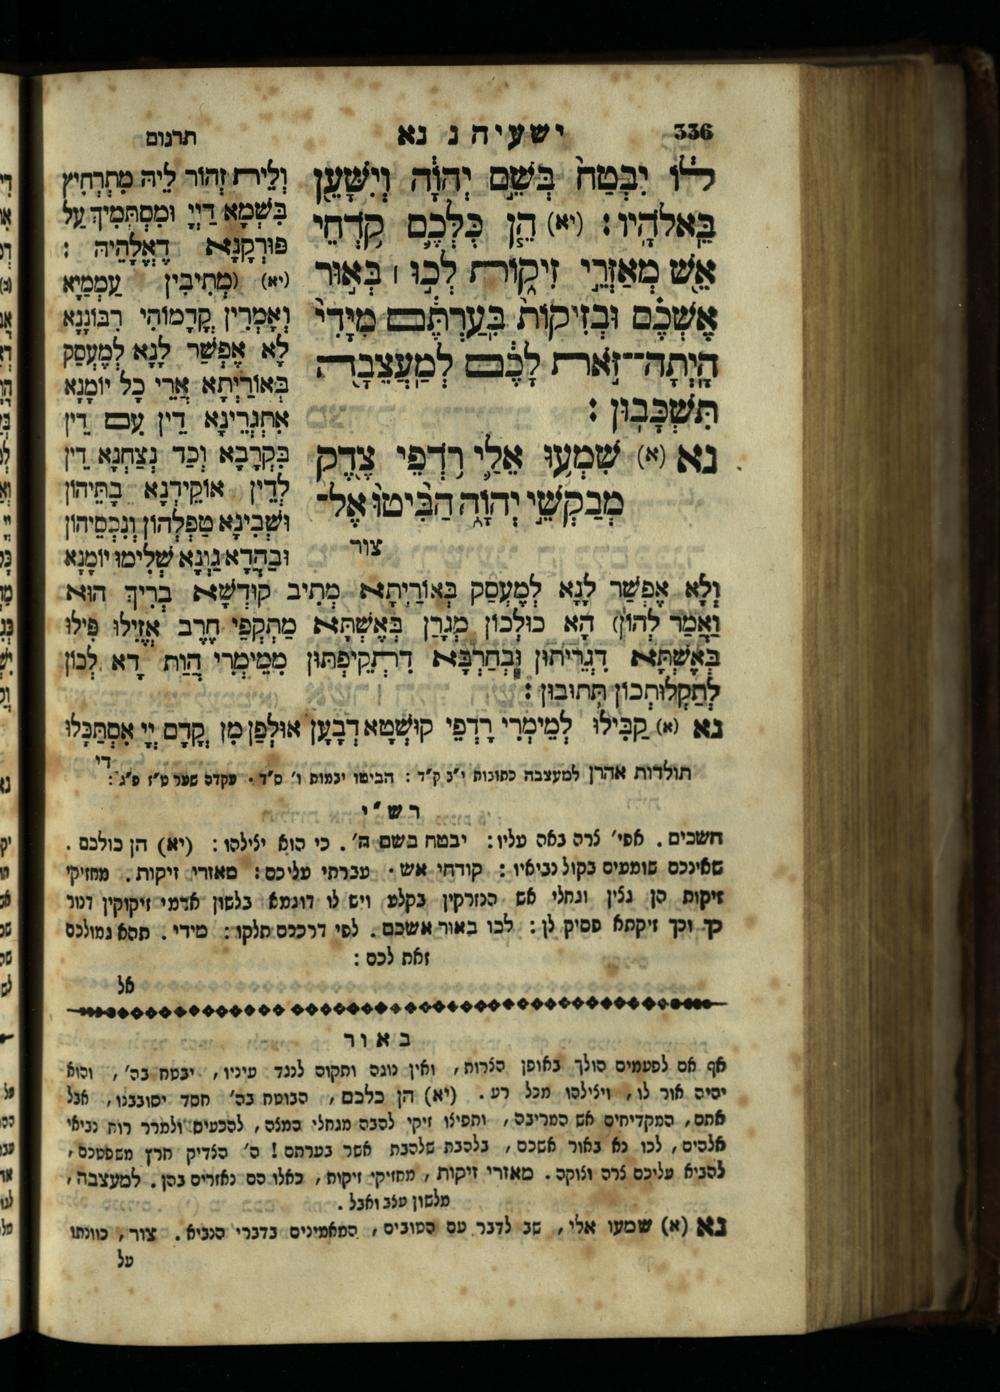 336
ישעיה נ נא
תרגום
לוֹ יִבְטַח בְּשֵׁם יְהוָֹה וְיִשָּׁעֵן
בֵּאלֹהָיו : (יא) הֵן כֻּלְּכֶם קֹדְחֵי
אֵשׁ מְאַזְּרֵי זִיקוֹת לְכוּ ׀ בְּאוּר
אֶשְׁכֶם וּבְזִיקוֹת בִּעַרְתֶּם מִיָּדִי
הָיְתָה־־זֹאת לָכֶם לְמַעֲצֵבָה
תִּשְׁכָּבוּן :
נא (א) שִׁמְעוּ אֵלַי רֹדְפֵי צֶדֶק
מְבַקְשֵׁי יְהוָֹה הַבִּיטוּ אֶל־
צור
וְלֵית זְהוֹר לֵיהּ מִתְרְחִיץ
בִּשְׁמָא דַיְיָ וּמִסְתְּמִיךְ עַל
פּוּרְקָנָא דֶאֱלָהֵיהּ :
(יא) (מְתִיבִין עַמְמַיָּא
וְאָמְרִין קֳדָמוֹהִי רִבּוֹנָנָא
לָא אֶפְשַׁר לָנָא לְמֶעְסַק
בְּאוֹרַיְתָא אֲרֵי כָל יוֹמָנָא
אִתְגְּרֵינָא דֵין עִם דֵין
בִּקְרָבָא וְכַד נְצַחְנָא דֵין
לְדֵין אוֹקִידְנָא בָתֵּיהוֹן
וּשְׁבִינָא טַפְלְהוֹן וְנִכְסֵיהוֹן
וּבְהָדָא גַוְנָא שְׁלִימוּ יוֹמָנָא
וְלָא אֶפְשַׁר לָנָא לְמֶעְסַק בְּאוֹרַיְתָא מְתִיב קוּדְשָׁא בְּרִיךְ הוּא
וַאֲמַר לְהוֹן) הָא כוּלְכוֹן מְגָרַן בְּאֶשָּׁתָא מַתְקְפֵי חֶרֶב אֱזִילוּ פִילוּ
בְּאֶשָּׁתָא דְגָרֵיתוּן וּבְחַרְבָּא דִתְקֵיפְתּוּן מִמֵּימְרִי הֲוַת דָא לְכוֹן
לְתַקָלוּתְכוֹן תְּתוּבוּן :
נא (א) קַבִּילוּ לְמֵימְרִי רָדְפֵי קוּשְׁטָא דְבָעָן אוּלְפַן מִן קֳדָם יְיָ אִסְתַּכָּלוּ
די
תולדות אהרן למעצבה כתובות י״ב ק״ד : הביטו יבמות ו׳ ס״ד . עקדה שער ט״ז פ״ג :
רש״י
חשכים . אפי׳ צרה באה עליו : יבטח בשם ה׳ . כי הוא יצילהו : (יא) הן כולכם .
שאינכם שומעים בקול נביאיו : קודחי אש . עברתי עליכם : מאזרי זיקות . מחזיקי
זיקות הן נצוץ וגחלי אש הנזרקין בקלע ויש לו דוגמא בלשון ארמי זיקוקין דנור
כך וכך זיקתא פסיק לן : לכו באור אשכם . לפי דרככם תלקו : מידי . תהא גמולכם
זאת לכם :
אל
באור
אף אם לפעמים הולך באופן הצרות, ואין נוגה ותקוה לנגד עיניו, יבטח בה׳, והוא
יהיה אור לו, ויצילהו מכל רע . (יא) הן כלכם, הבוטח בה׳ חסד יסובבנו, אבל
אתם, המקדיחים אש המריבה, ותפיצו זיקי להבה מגחלי המצה, להכעים ולמרר רוח נביאי
אלהים, לכו נא באור אשכם, בלהבת שלהבת אשר בערתם ! ה׳ הצדיק חרץ משפטכם,
להביא עליכם צרה וצוקה . מאזרי זיקות, מחזיקי זיקות, כאלו הם נאזרים בהן . למעצבה,
מלשון עצב ואבל .
נא (א) שמעו אלי, שב לדבר עם הטובים, המאמינים בדברי הנביא . צור, כוונתו
על